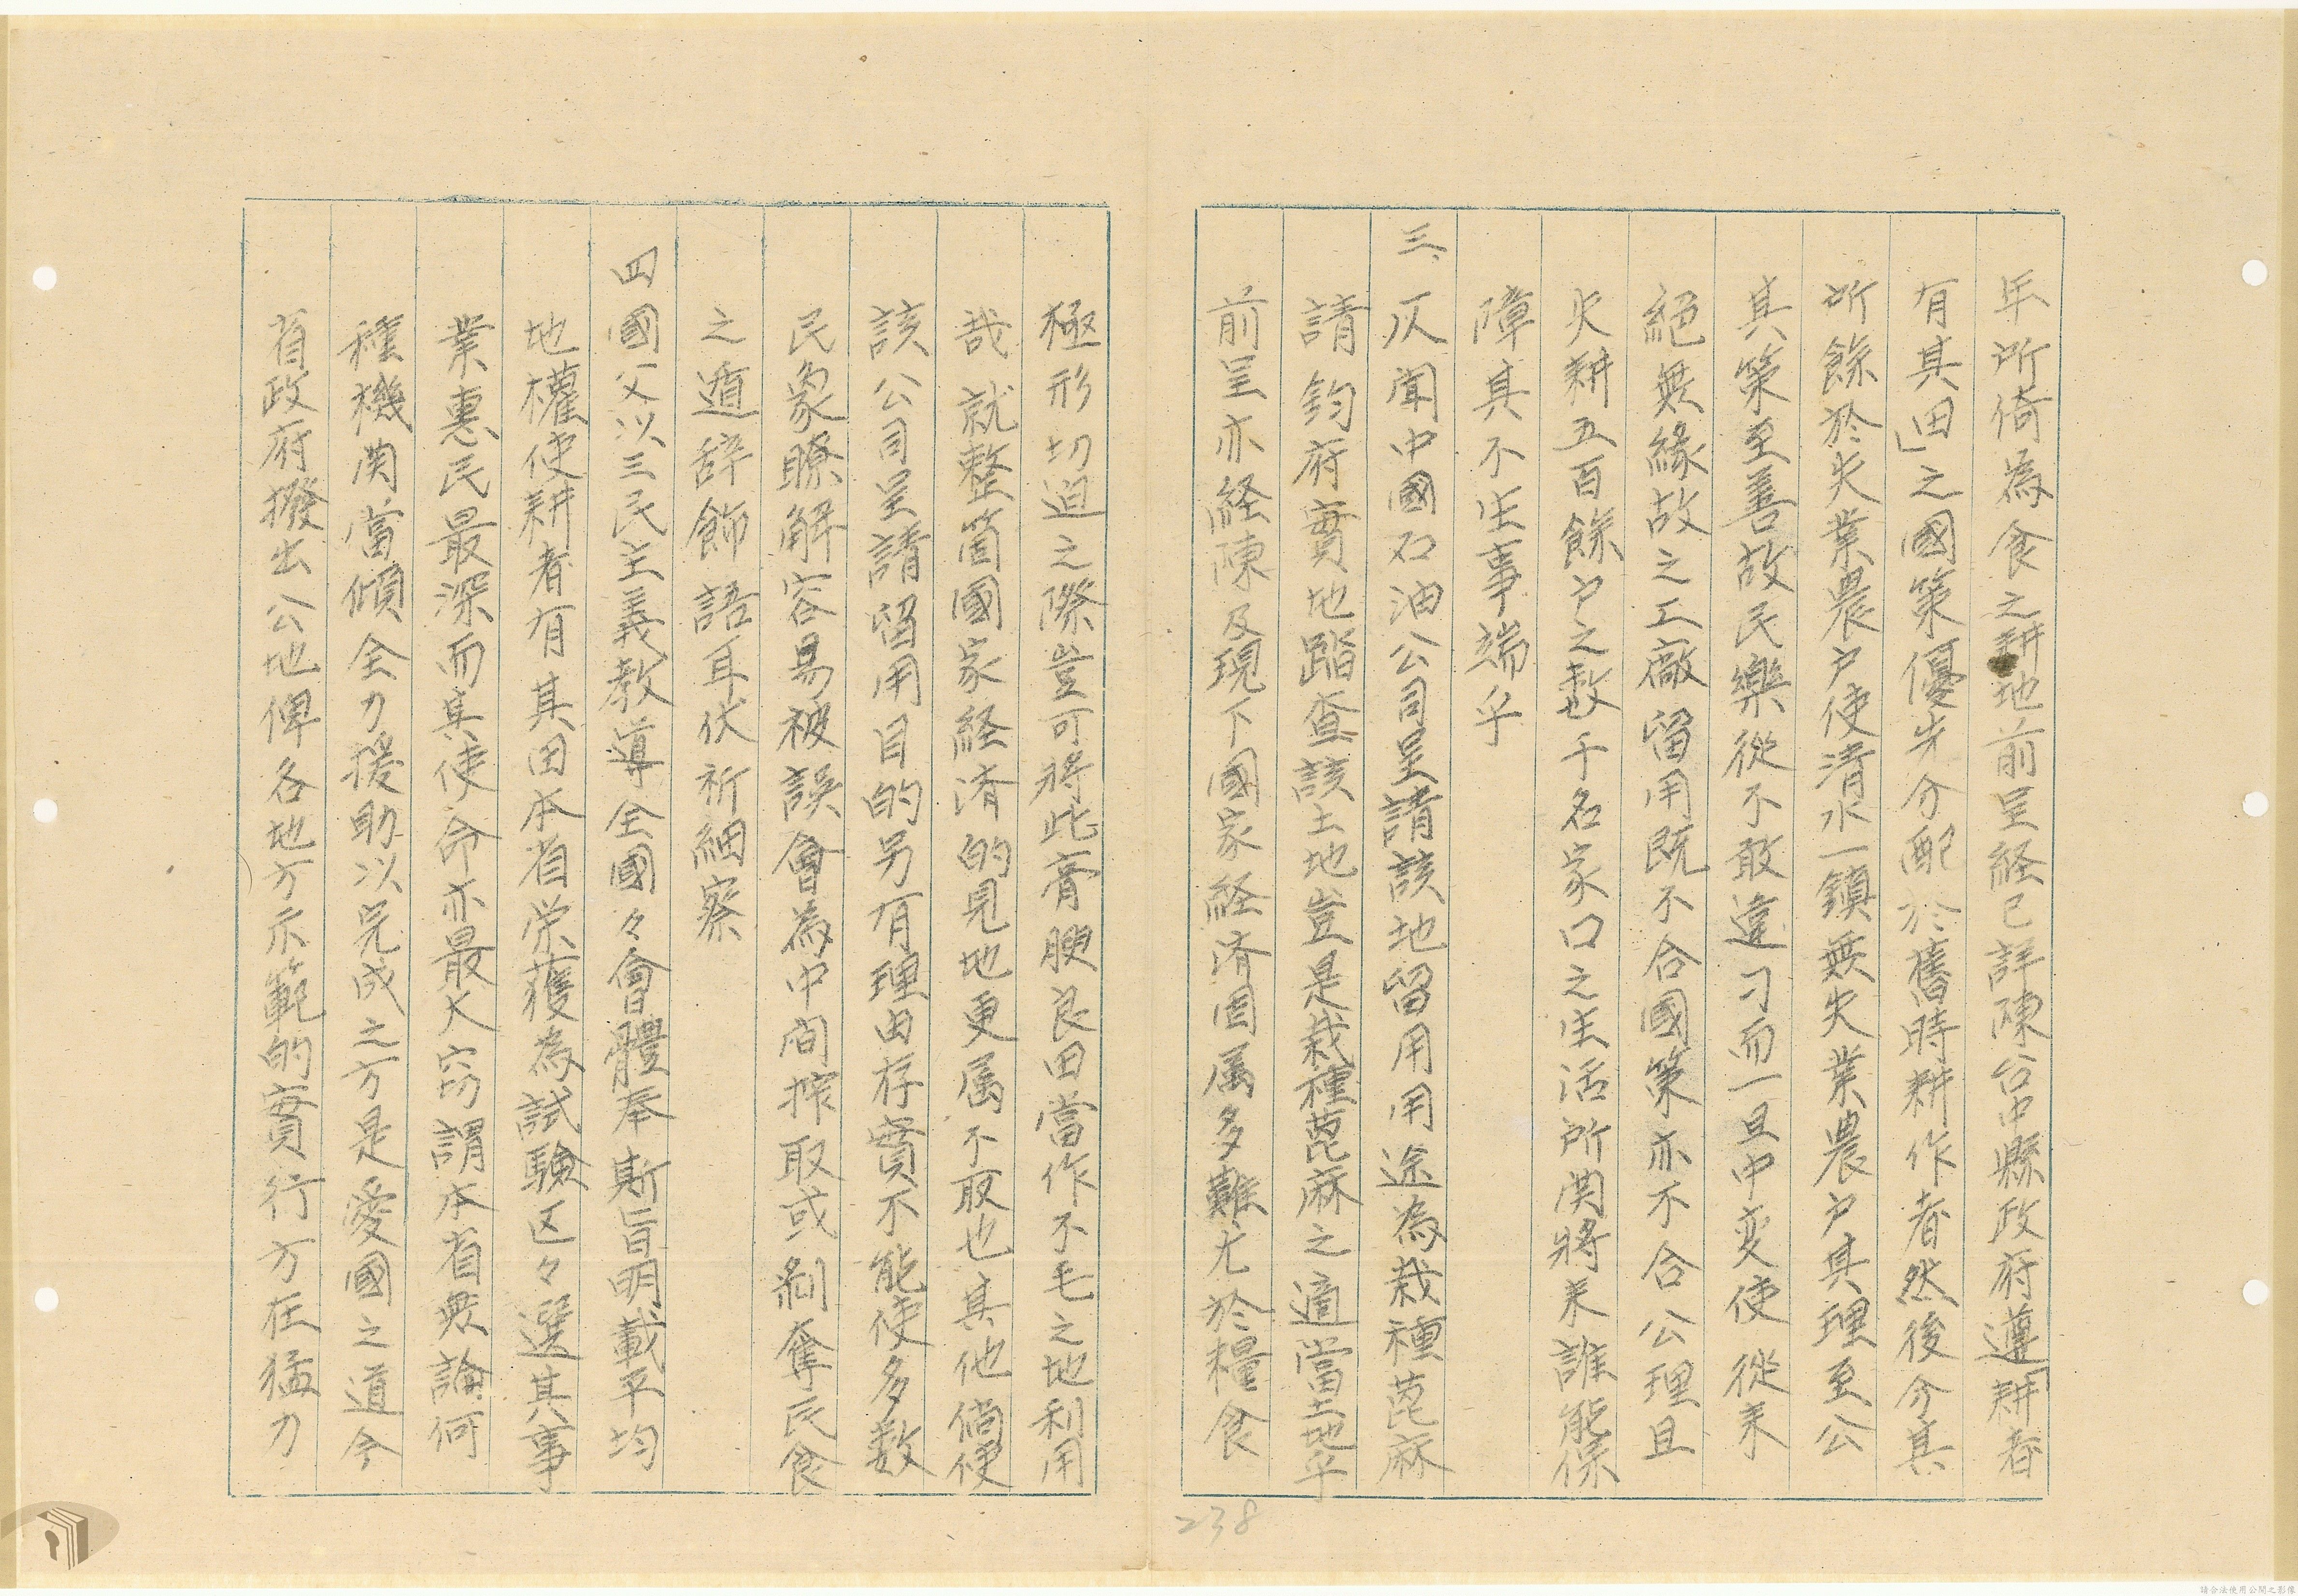 年所倚為食之耕地前呈経已詳陳台中縣政府遵「耕者
有其田」之國策優先分配於舊時耕作者然後分其
所餘於失業農户使清水一鎮無失業農户其理至公
其策至善故民樂從不敢違刁而一旦中変使從来
絕無緣故之工廠留用既不合國策亦不合公理且
失耕五百餘户之数千名家口之生活所関將来誰能保
障其不生事端乎
三、仄聞中國石油公司呈請該地留用用途為栽種萞麻
請鈞府實地踏查該土地豈是栽種萞麻之適當土地乎
前呈亦経陳及現下國家経済困属多難尤於糧食
極形切迫之際豈可將此膏腴良田當作不毛之地利用
哉就整箇國家経済的見地更属不取也其他倘使
該公司呈請留用目的另有理由存實不能使多数
民象瞭解容易被誤會為中间搾取或剝奪民食
之遁辞飾語耳伏祈細察
四國父以三民主義教導全國々會體奉斯旨明載平均
地權使耕者有其田本省栄獲為試験区々選其事
業惠民最深而其使命亦最大窃謂本省無論何
種機関當傾全力援助以完成之方是愛國之道今
省政府撥出公地俾各地方示範的實行方在猛力
238
請合法使用公開之影像